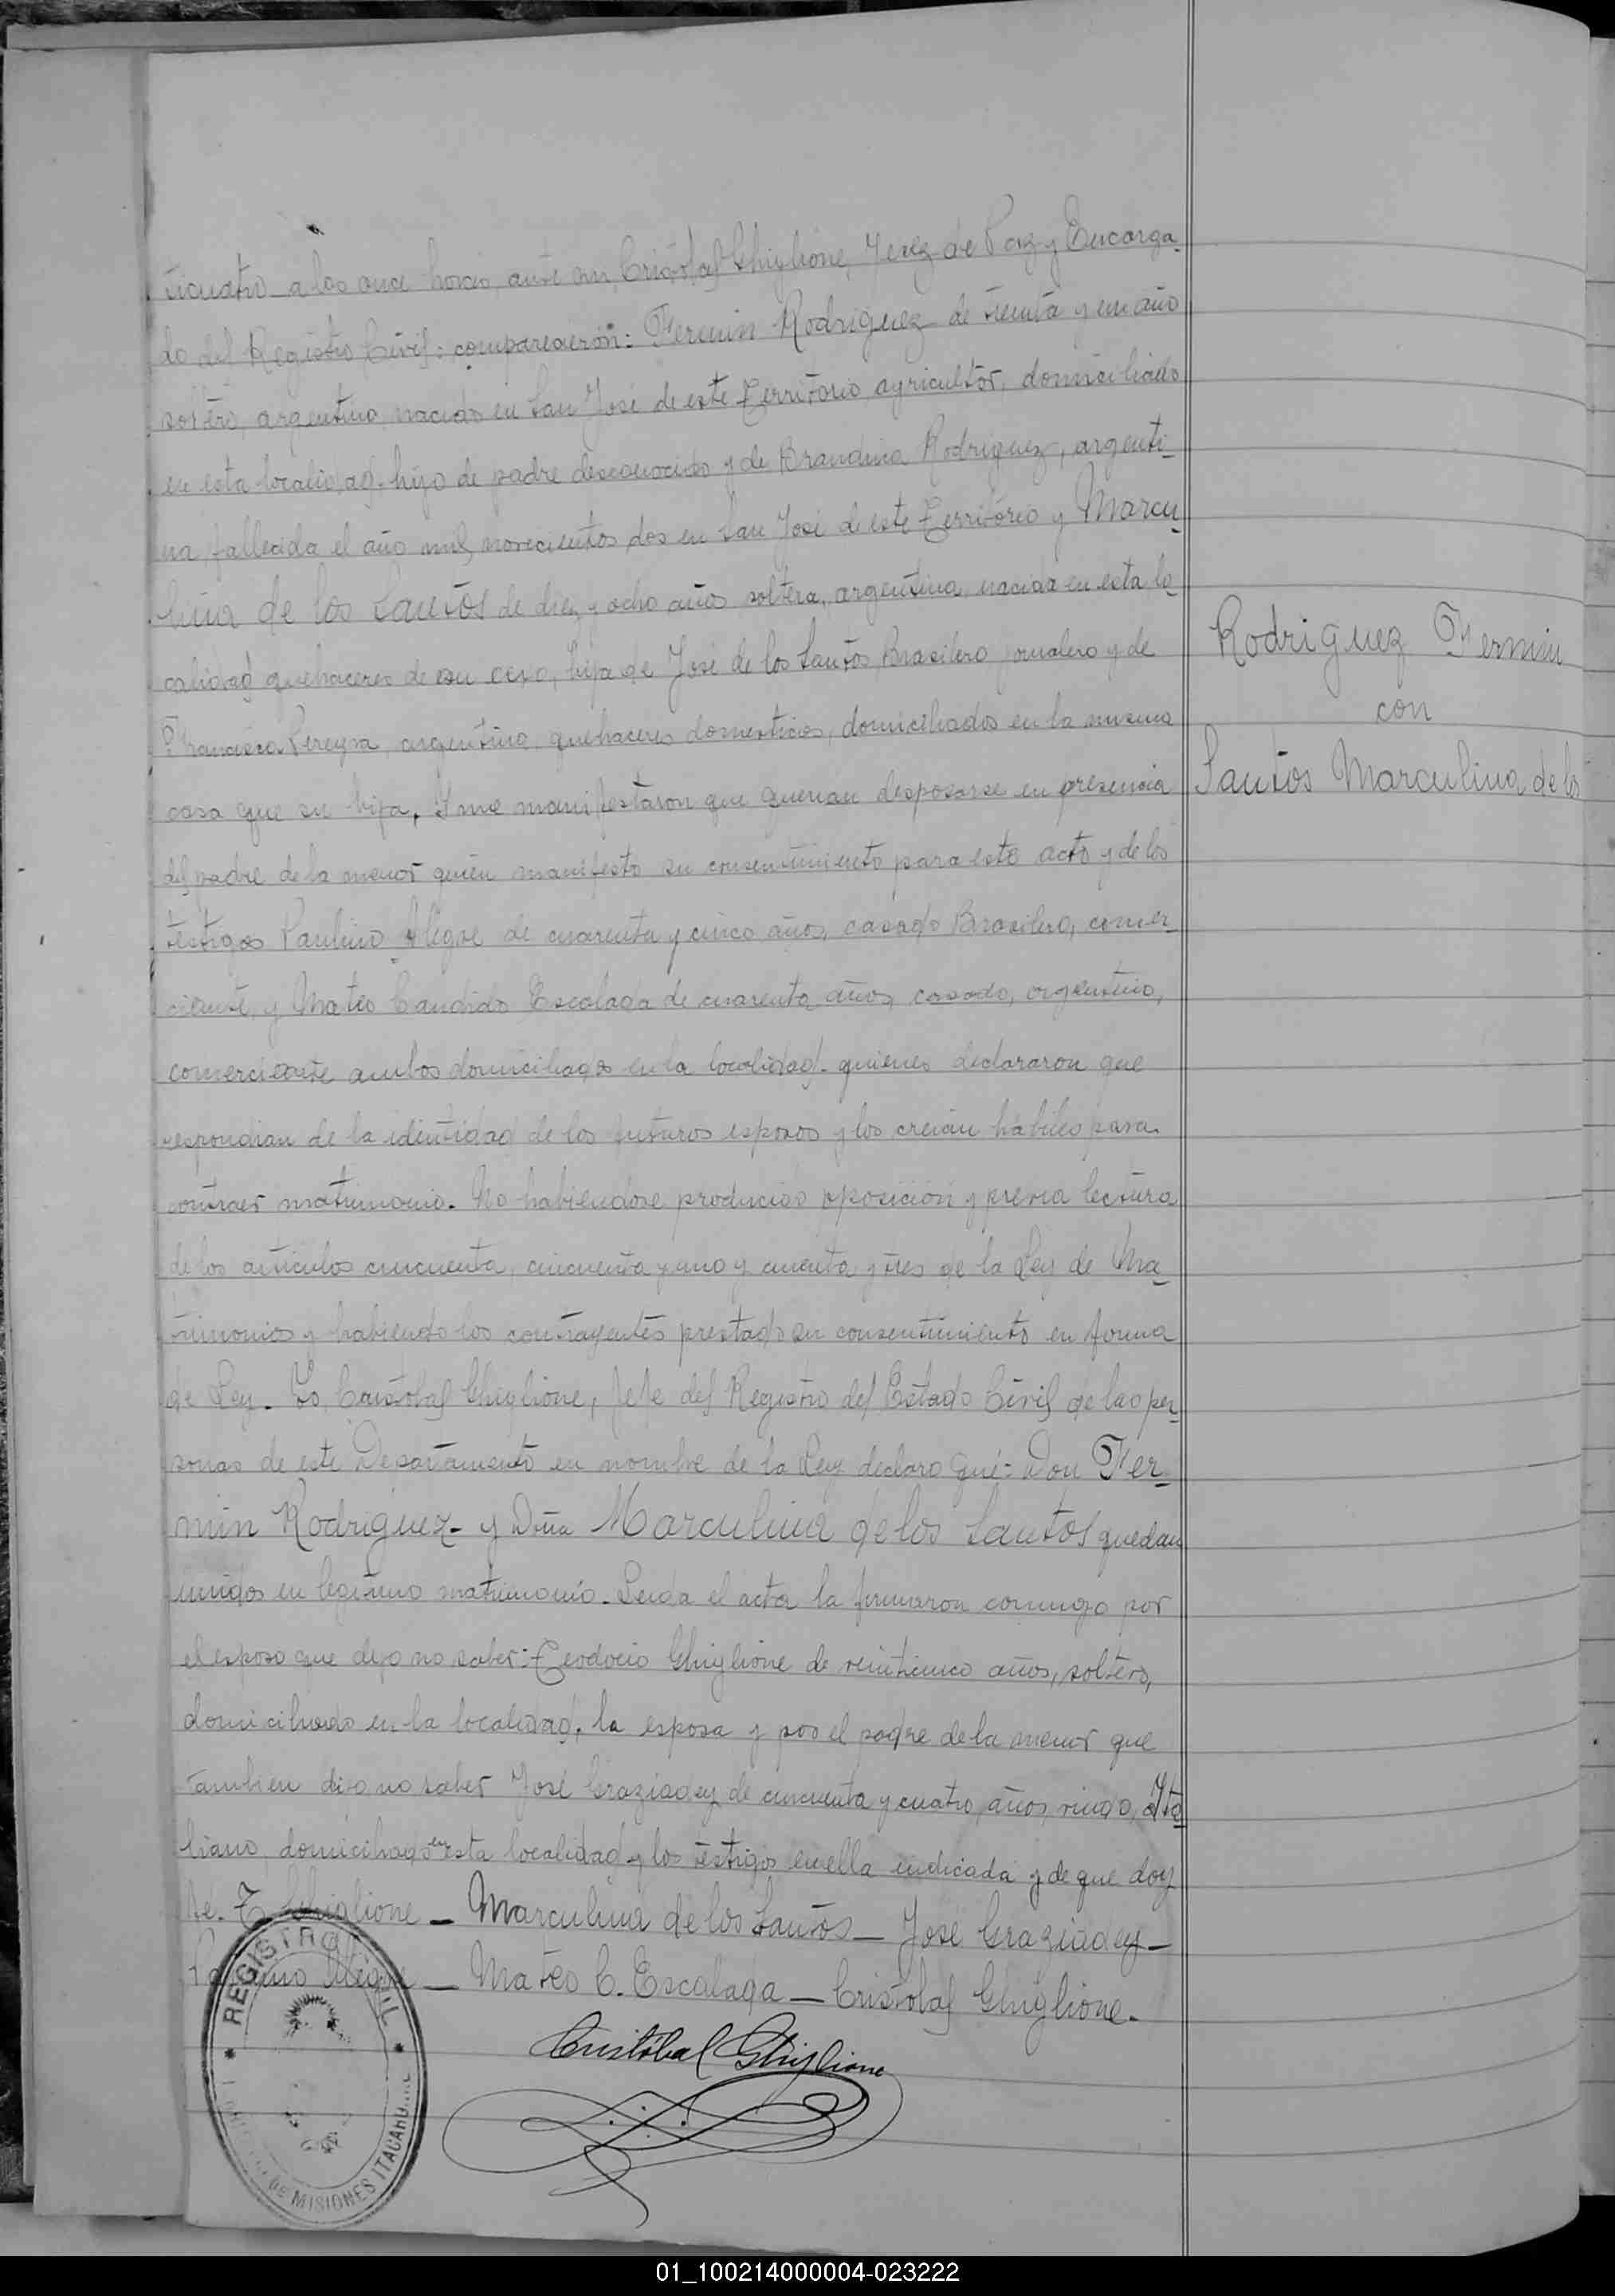 ticuatro a las once horas, ante mi, Cristobal Ghiglione, Juez de Paz y Encarga-
do del Registro Civil: comparecieron: Fermin Rodriguez de treinta y un año
soltero, argentino, nacido en San José de este Territorio, agricultor, domiciliado
en esta localidad, hijo de padre desconocido y de Brandina Rodriguez, argenti-
na, fallecida el año mil novecientos dos en San José de este Territorio y Marcu-
lina de los Santos de diez y ocho años, soltera, argentina, nacida en esta lo-
calidad quehaceres de su sexo, hija de José de los Santos, Brasilero, jornalero y de
Francisca Pereyra, argentina, quehaceres domesticos, domiciliados en la misma
casa que su hija. Y me manifestaron que querian desposarse en presencia
del padre de la menor quien manifesto su consentimiento para este acto y de los
testigos Paulino Alegre de cuarenta y cinco años, casado Brasilero, comer-
ciante, y Mateo Candido Escalada de cuarenta años, casado, argentino,
comerciante ambos domiciliados en la localidad, quienes declararon que
respondian de la identidad de los futuros esposos y los creian hábiles para
contraer matrimonio. No habiendose producido oposición y previa lectura
de los articulos cincuenta, cincuenta y uno y cincuenta y tres de la Ley de Ma-
trimonio y habiendo los contrayentes prestado su consentimiento en forma
de Ley. Yo, Cristobal Ghiglione, Jefe del Registro del Estado Civil de las per-
sonas de este Departamento en nombre de la Ley declaro qué: Don Fer-
min Rodriguez - y Doña Marculina de los Santos quedan
unidos en legitimo matrimonio. Leida el acta la firmaron conmigo por
el esposo que dijo no saber: Teodocio Ghiglione de veinticinco años, soltero,
domiciliado en la localidad, la esposa y por el padre de la menor que
tambien dijo no saber José Graziadey de cincuenta y cuatro, años, viudo, Ita-
liano, domiciliado en esta localidad y los testigos en ella indicada y de que doy
fe. T. Ghiglione - Marculina de los Santos - José Graziadey -
Paulino Alegre - Mateo C. Escalada - Cristobal Ghiglione.
Cristóbal Ghiglione
Rodriguez Fermin
con
Santos Marculina de los
REGISTRO CIVIL
DE MISIONES ITACARUARE
01_100214000004-023222